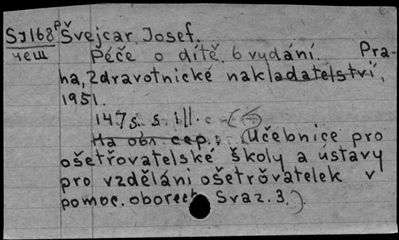 SJ168р Švejcar, Josef.
чеш Péče o dítě. 6 vydání. Pra-
ha, Zdravotnické nakladatelství,
1951.
147s. s ill.
На обл. сер.: (Učebnice pro
ošetřovatelské školy a ústavy
pro vzděláni ošetřovatelek v
pomoc. oborech Svaz. 3.)